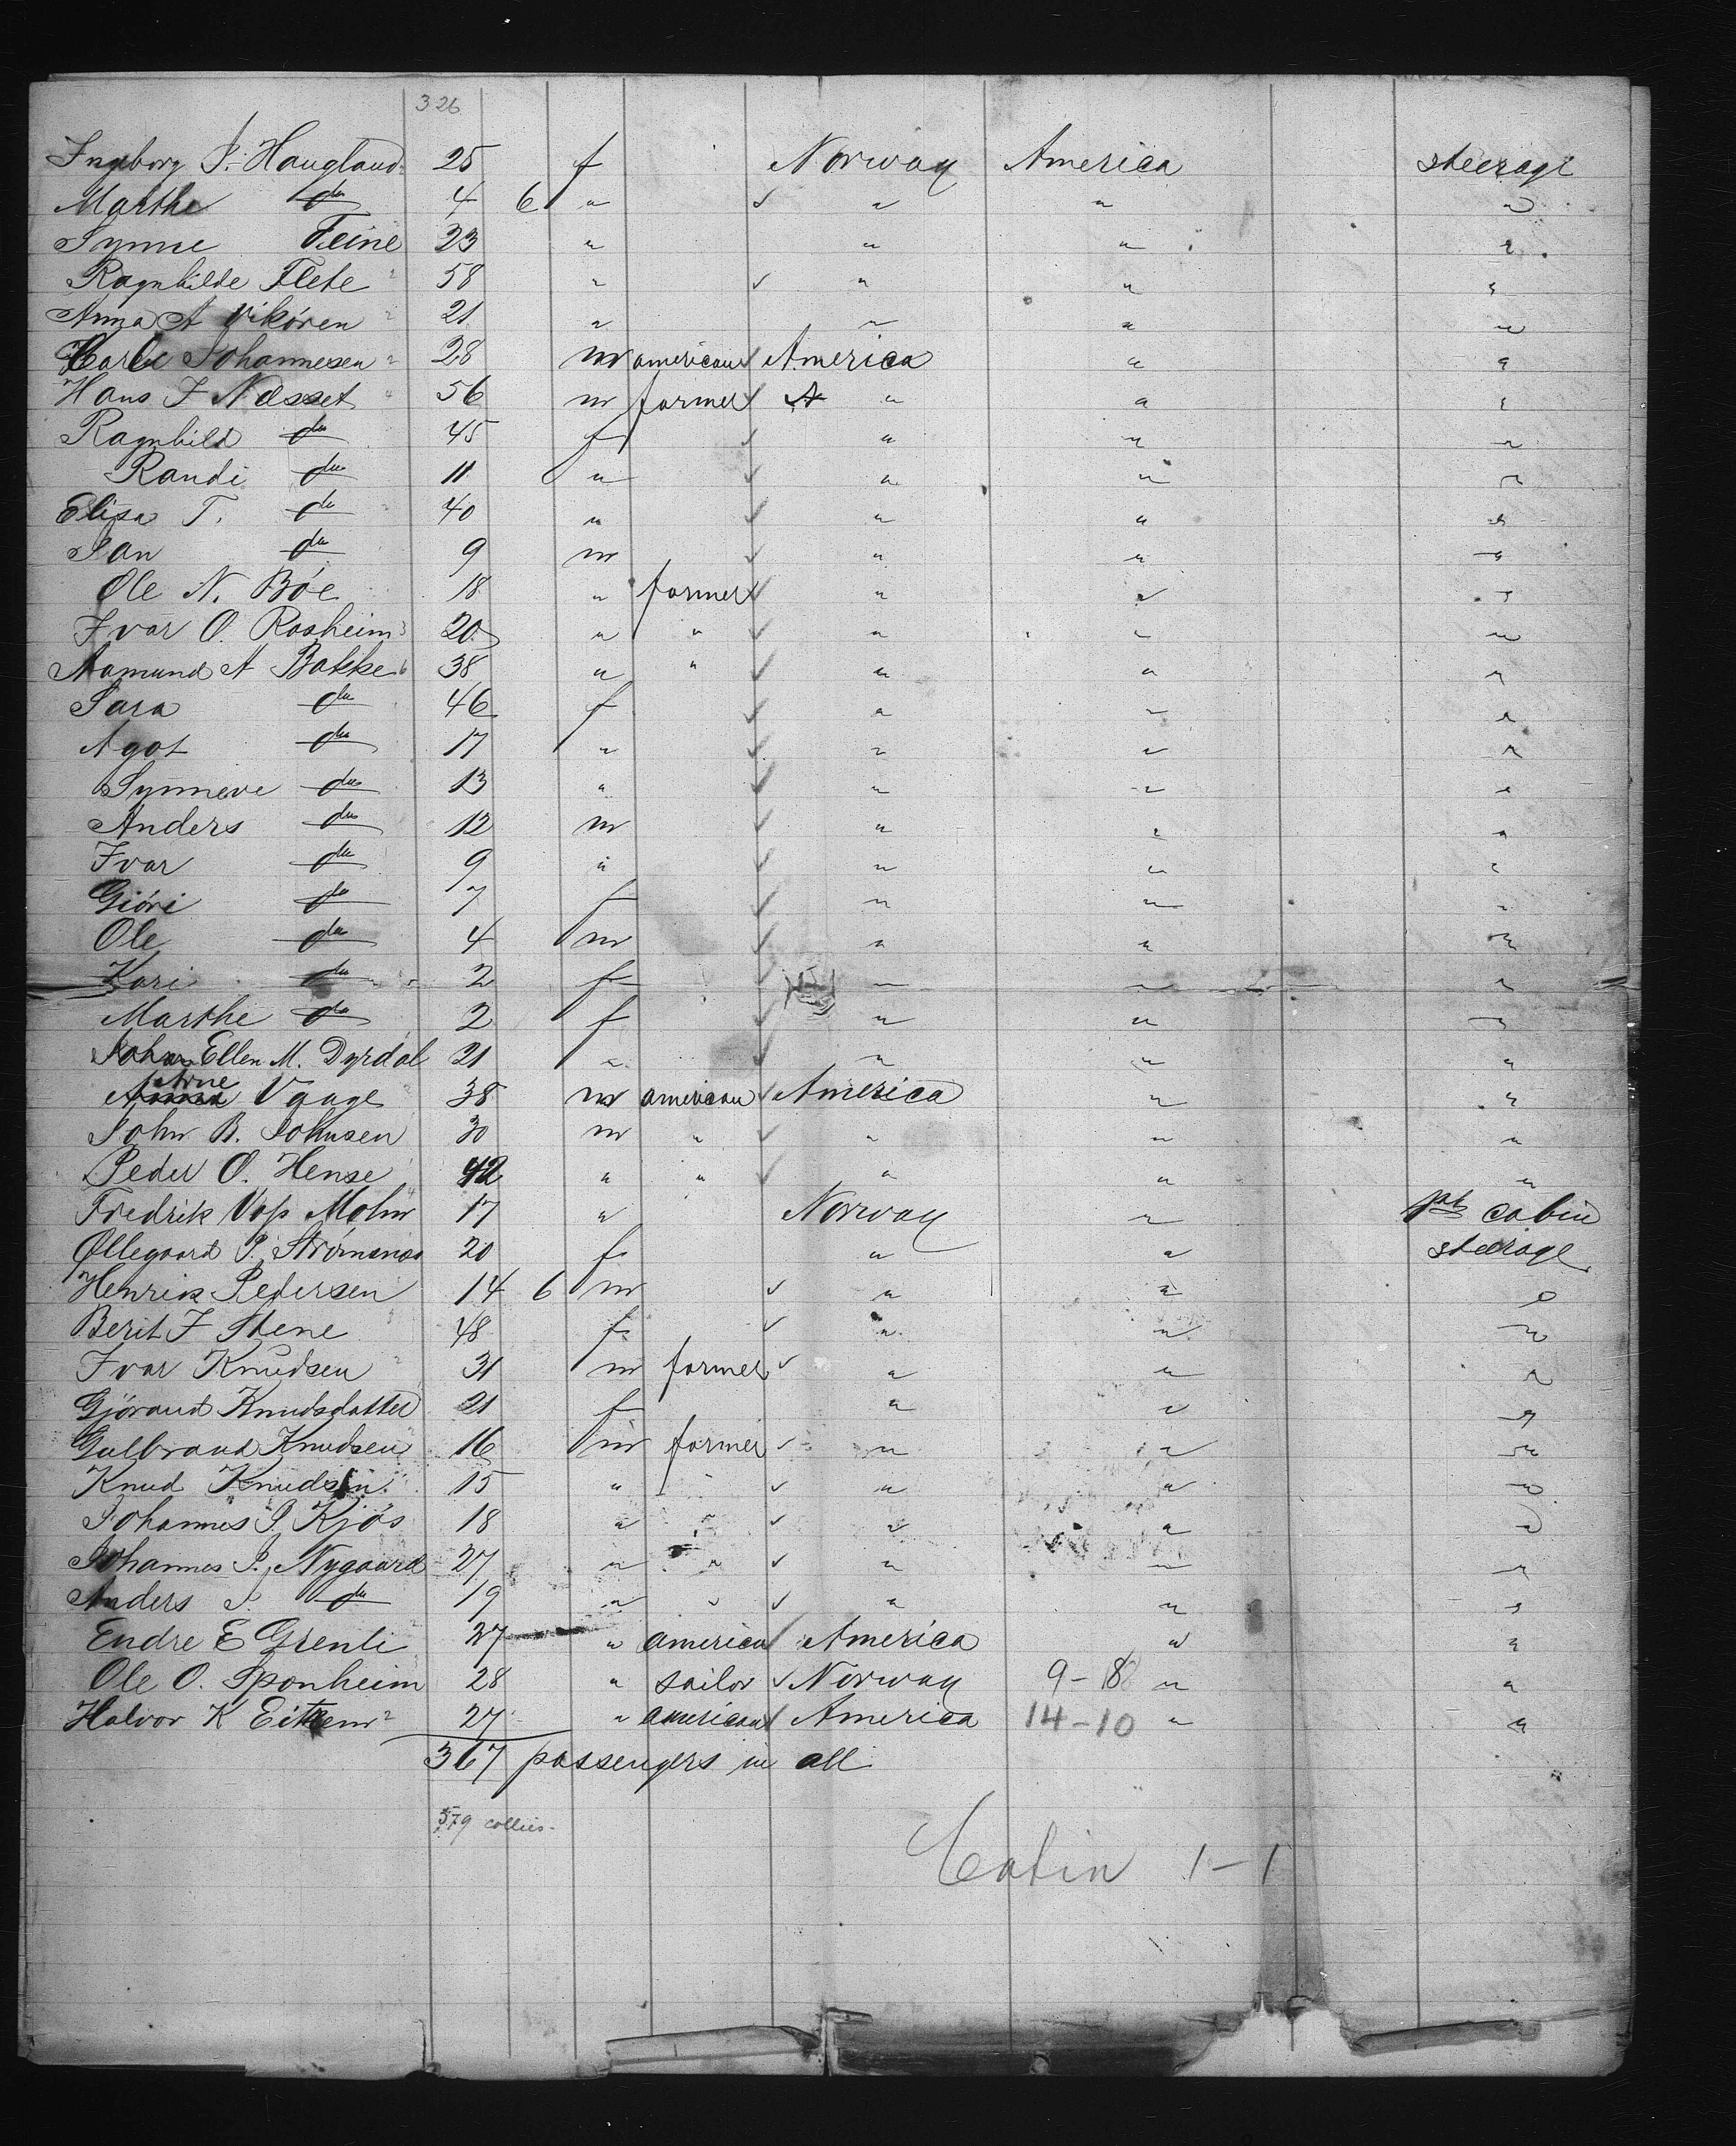 326
Ingeborg J. Haugland 25 f Norway America steerage
Marthe do 4 6 " ✓ " " "
Synne Feine 23 " " " "
Ragnhilde Flete 58 " ✓ " " "
Anna A Vikören 21 " " " "
Johannesen 28 m american ✓ America " "
Hans J Næsset 56 m farmer ✓ " " "
Ragnhild do 45 f ✓ " " "
Randi do 11 " ✓ " " "
Elisa T. do 40 " ✓ " " "
Jan do 9 m ✓ " " "
Ole N. Böe 18 " farmer ✓ " " "
Ivar O. Rosheim 20 " " ✓ " " "
Aamund A Bakke 38 " " ✓ " " "
Sara do 46 f ✓ " " "
Agot do 17 " ✓ " " "
Synneve do 13 " ✓ " " "
Anders do 12 m ✓ " " "
Ivar do 9 " ✓ " " "
Giöri do 7 f ✓ " " "
Ole do 4 m ✓ " " "
Kari do 2 f ✓ " " "
Marthe do 2 f ✓ " " "
Ellen M. Dyrdal 21 " ✓ " " "
Arne Vange 38 m american ✓ America " "
John B. Johnsen 30 m " ✓ " " "
Peder O. Hense 42 " " ✓ " " "
Fredrik Vop Mohn 17 " Norway " cabin
Øllegaard P. Strömsnæs 20 f " " steerage
Henrik Pedersen 14 6 m ✓ " " "
Berit J Stene 48 f ✓ " " "
Ivar Knudsen 31 m farmer ✓ " " "
Gjöraud Knudsdatter 21 f " " "
Gulbrand Knudsen 16 m farmer ✓ " " "
Knud Knudsen 15 " " ✓ " " "
Johannes J. Kjös 18 " " ✓ " " "
Johannes J. Nygaard 27 " " ✓ " " "
Anders J. do 19 " " ✓ " " "
Endre E Grenli 27 " american America " "
Ole O. Sponheim 28 " sailor ✓ Norway 9-8 " "
Halvor K Eitrem 27 " american ✓ America 14-10 " "
367 passengers in all
579 collies.
Cabin 1-1